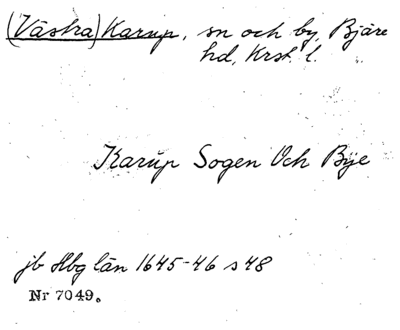 (Västra) Karup, sn och by, Bjäre
hd, Krst. l.
Karup Sogen Och Bÿe
jb Hbg län 1645-46 s 48
Nr 7049.